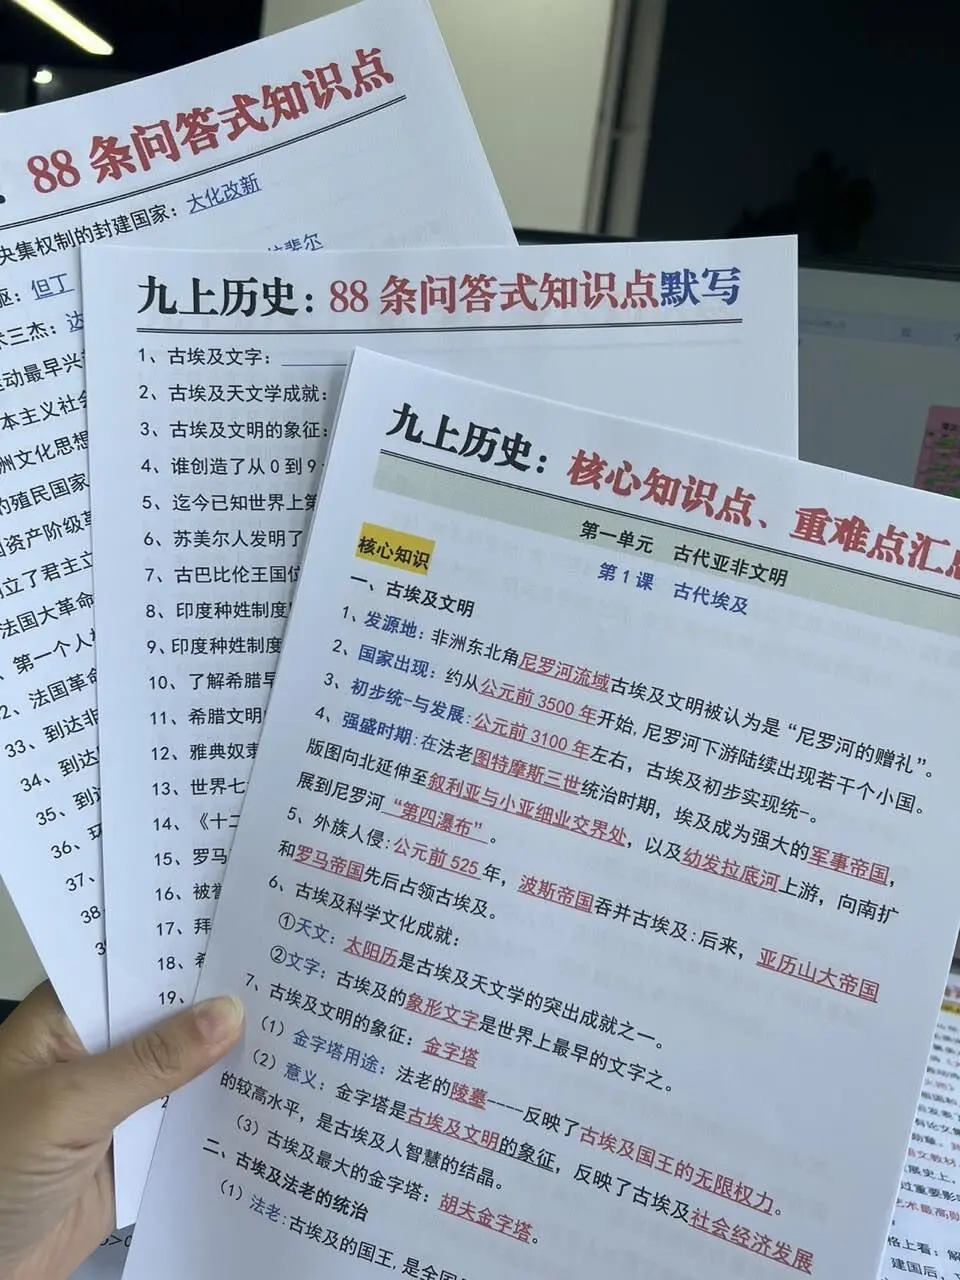 88 条问答式知识点
央集权制的封建国家：大化改新
驱：但丁
术三杰：达
运动最早兴
本主义社会
洲文化思想
的殖民国家
国资产阶级革
立了君主立
法国大革命
、第一个人
2、法国革命
33、到达非
34、到达
35、到达
36、环
37、
38
九上历史：88 条问答式知识点默写
1、古埃及文字：
2、古埃及天文学成就：
3、古埃及文明的象征：
4、谁创造了从 0 到 9
5、迄今已知世界上第
6、苏美尔人发明了
7、古巴比伦王国位
8、印度种姓制度
9、印度种姓制度
10、了解希腊早
11、希腊文明
12、雅典奴隶
13、世界七
14、《十二
15、罗马
16、被誉
17、拜
18、希
19、
九上历史：核心知识点、重难点汇总
第一单元 古代亚非文明
第 1 课 古代埃及
核心知识
一、古埃及文明
1、发源地：非洲东北角尼罗河流域古埃及文明被认为是“尼罗河的赠礼”。
2、国家出现：约从公元前 3500 年开始，尼罗河下游陆续出现若干个小国。
3、初步统一与发展：公元前 3100 年左右，古埃及初步实现统一。
4、强盛时期：在法老图特摩斯三世统治时期，埃及成为强大的军事帝国，
版图向北延伸至叙利亚与小亚细业交界处，以及幼发拉底河上游，向南扩
展到尼罗河“第四瀑布”。
5、外族人侵：公元前 525 年，波斯帝国吞并古埃及：后来，亚历山大帝国
和罗马帝国先后占领古埃及。
6、古埃及科学文化成就：
①天文：太阳历是古埃及天文学的突出成就之一。
②文字：古埃及的象形文字是世界上最早的文字之。
7、古埃及文明的象征：金字塔
（1）金字塔用途：法老的陵墓----反映了古埃及国王的无限权力。
（2）意义：金字塔是古埃及文明的象征，反映了古埃及社会经济发展
的较高水平，是古埃及人智慧的结晶。
（3）古埃及最大的金字塔：胡夫金字塔。
二、古埃及法老的统治
（1）法老：古埃及的国王，是全国